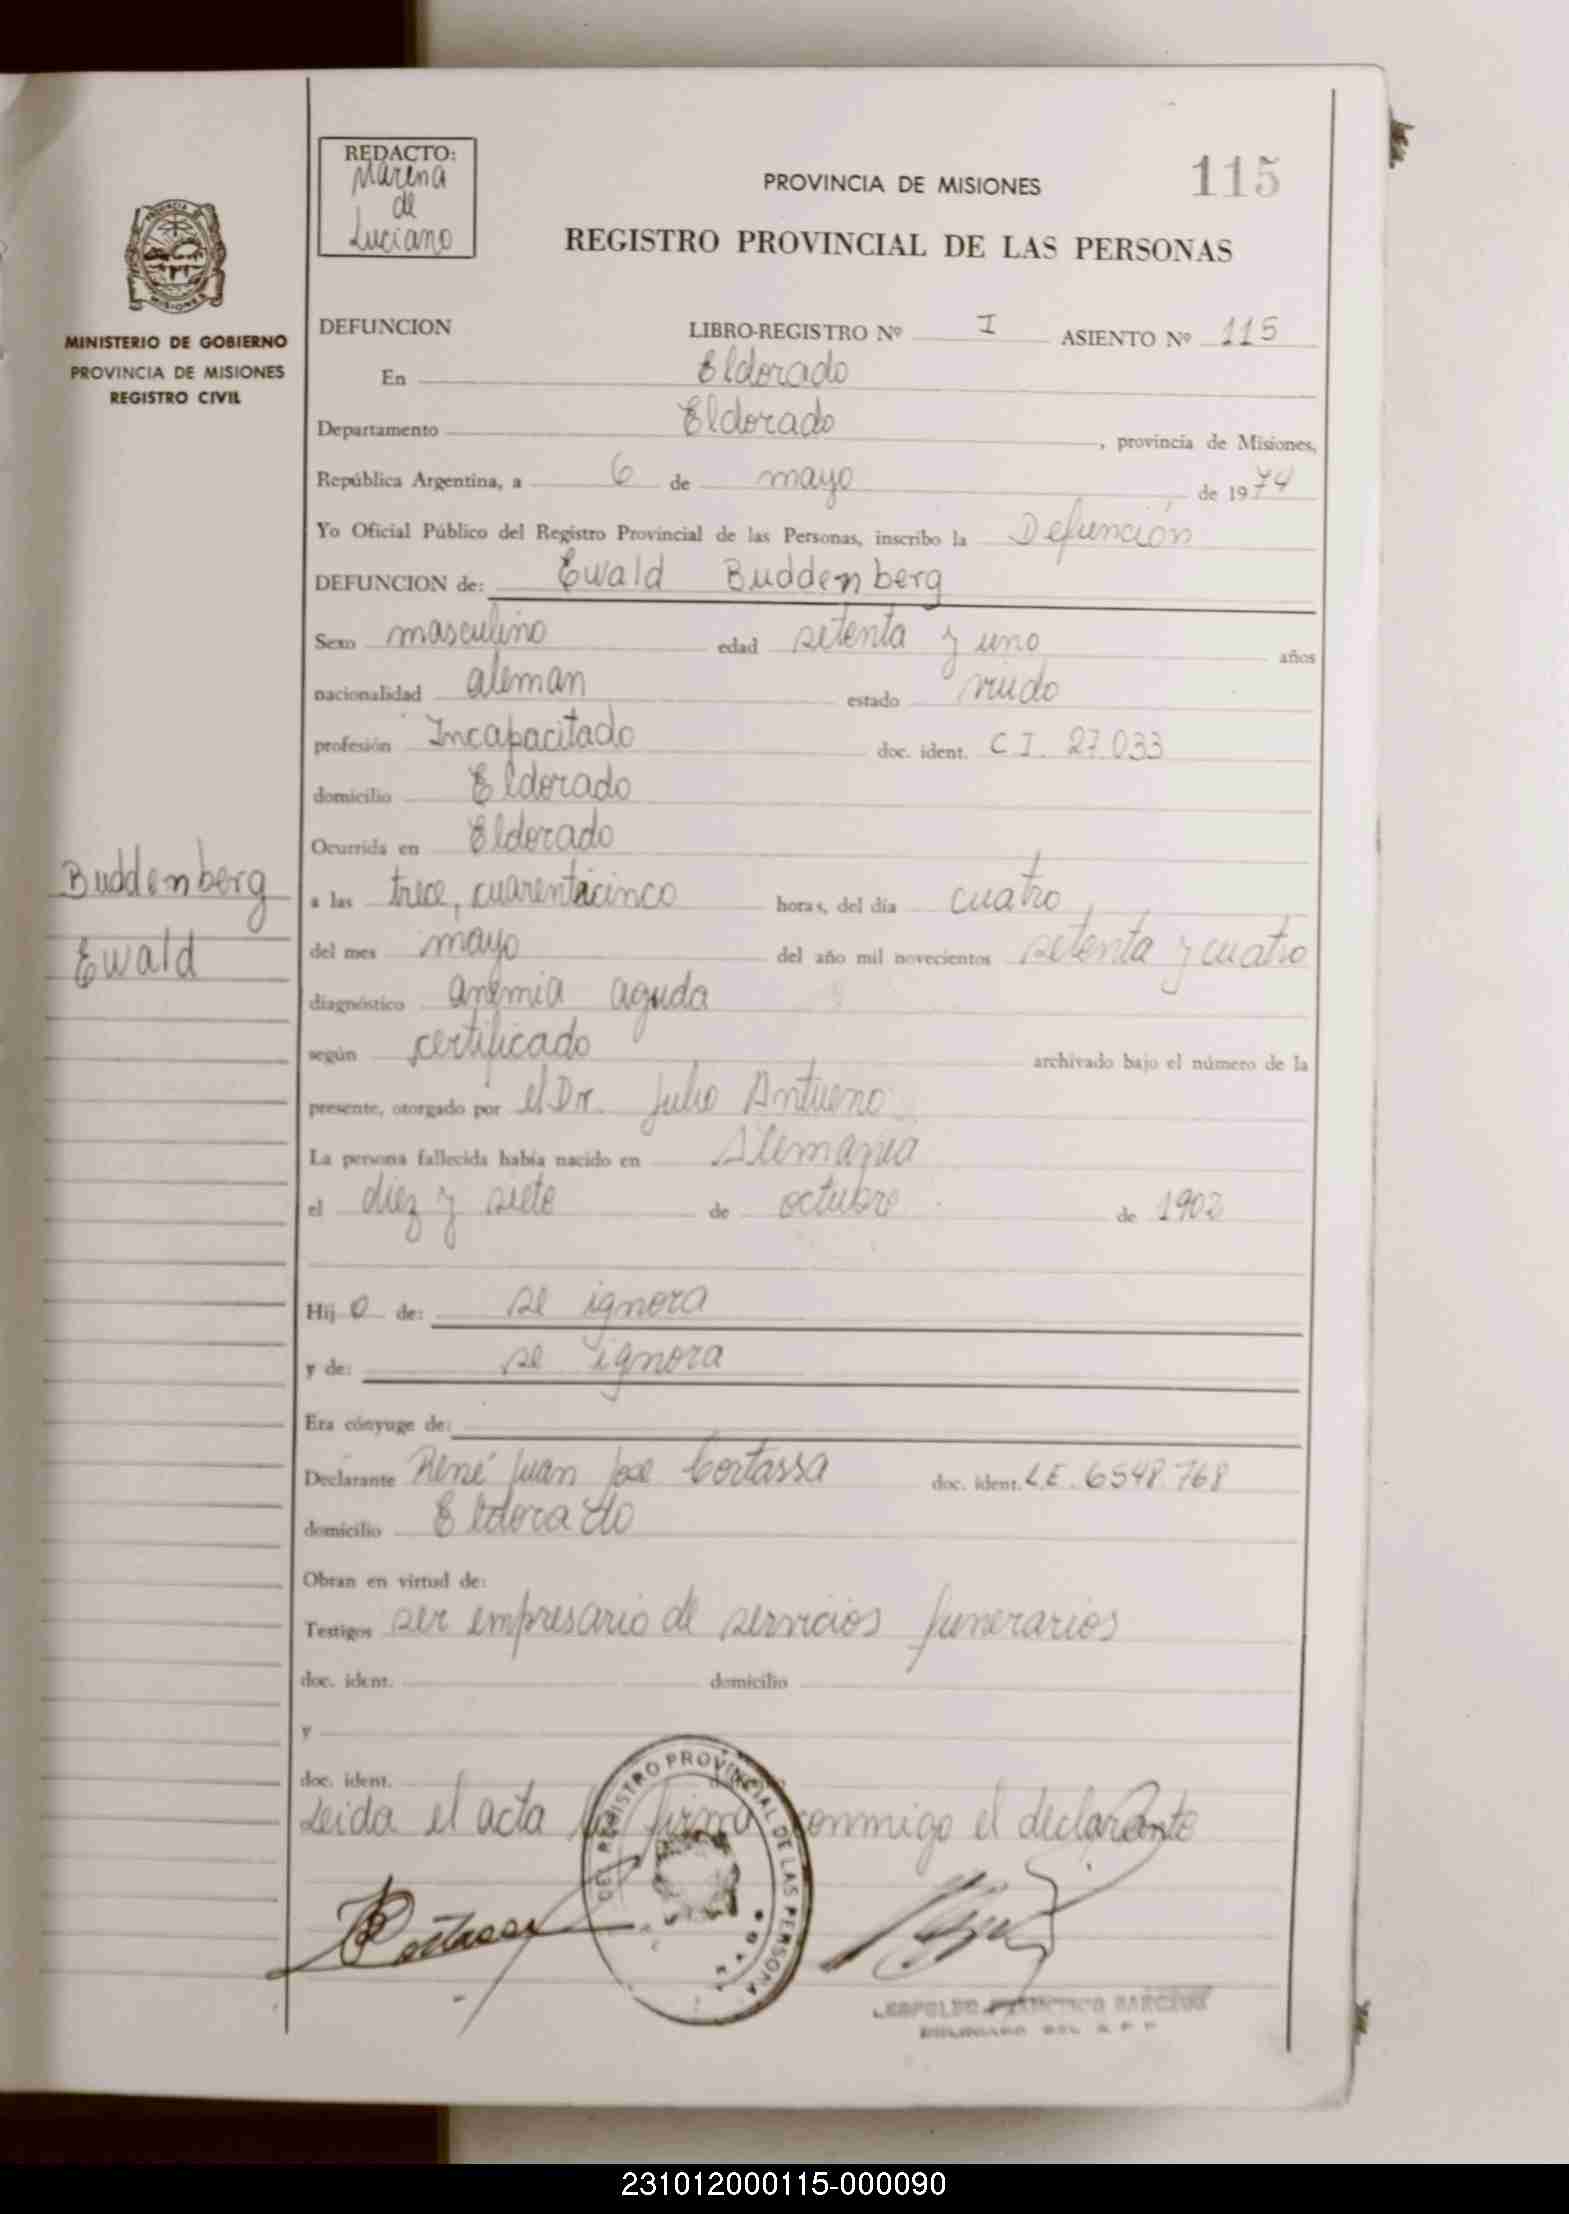 REDACTO:
Marina
de
Luciano
PROVINCIA DE MISIONES
115
REGISTRO PROVINCIAL DE LAS PERSONAS
MINISTERIO DE GOBIERNO
PROVINCIA DE MISIONES
REGISTRO CIVIL
DEFUNCION LIBRO-REGISTRO Nº I ASIENTO Nº 115
En Eldorado
Departamento Eldorado, provincia de Misiones,
República Argentina, a 6 de mayo de 1974
Yo Oficial Público del Registro Provincial de las Personas, inscribo la Defunción
DEFUNCION de: Ewald Buddenberg
Sexo masculino edad setenta y uno años
nacionalidad aleman estado viudo
profesión Incapacitado doc. ident. C I. 27.033
domicilio Eldorado
Ocurrida en Eldorado
Buddenberg
Ewald
a las trece, cuarenticinco horas, del día cuatro
del mes mayo del año mil novecientos setenta y cuatro
diagnóstico anemia aguda
según certificado archivado bajo el número de la
presente, otorgado por el Dr. Julio Antueno
La persona fallecida había nacido en Alemania
el diez y siete de octubre de 1902
Hij o de: se ignora
y de: se ignora
Era cónyuge de:
Declarante René Juan José Cortassa doc. ident. L.E. 6548.768
domicilio Eldorado
Obran en virtud de:
Testigos ser empresario de servicios funerarios
doc. ident. domicilio
y
doc. ident.
Leida el acta la firma conmigo el declarante
DEL REGISTRO PROVINCIAL DE LAS PERSONA
RCortassa
231012000115-000090